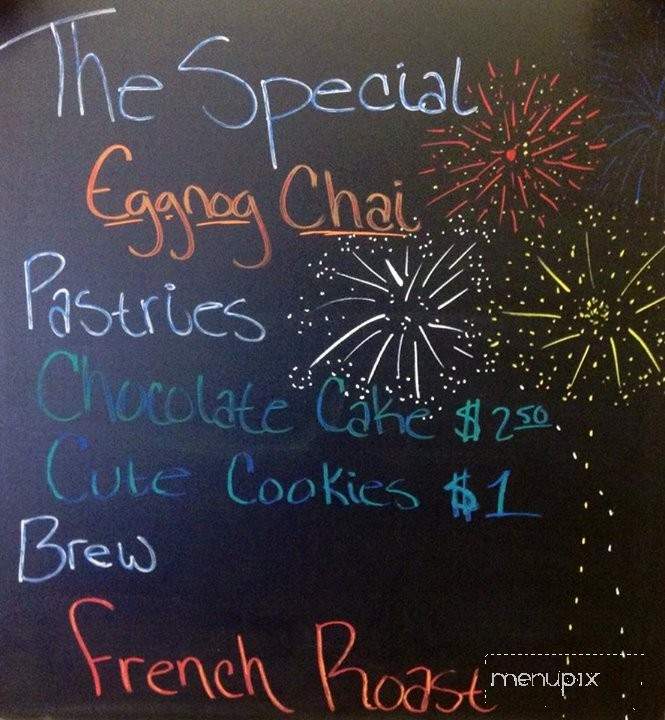 The Special
Eggnog Chai
Pastries
Chocolate Cake $2.50
Cute Cookies $1
Brew
French Roast
menupix